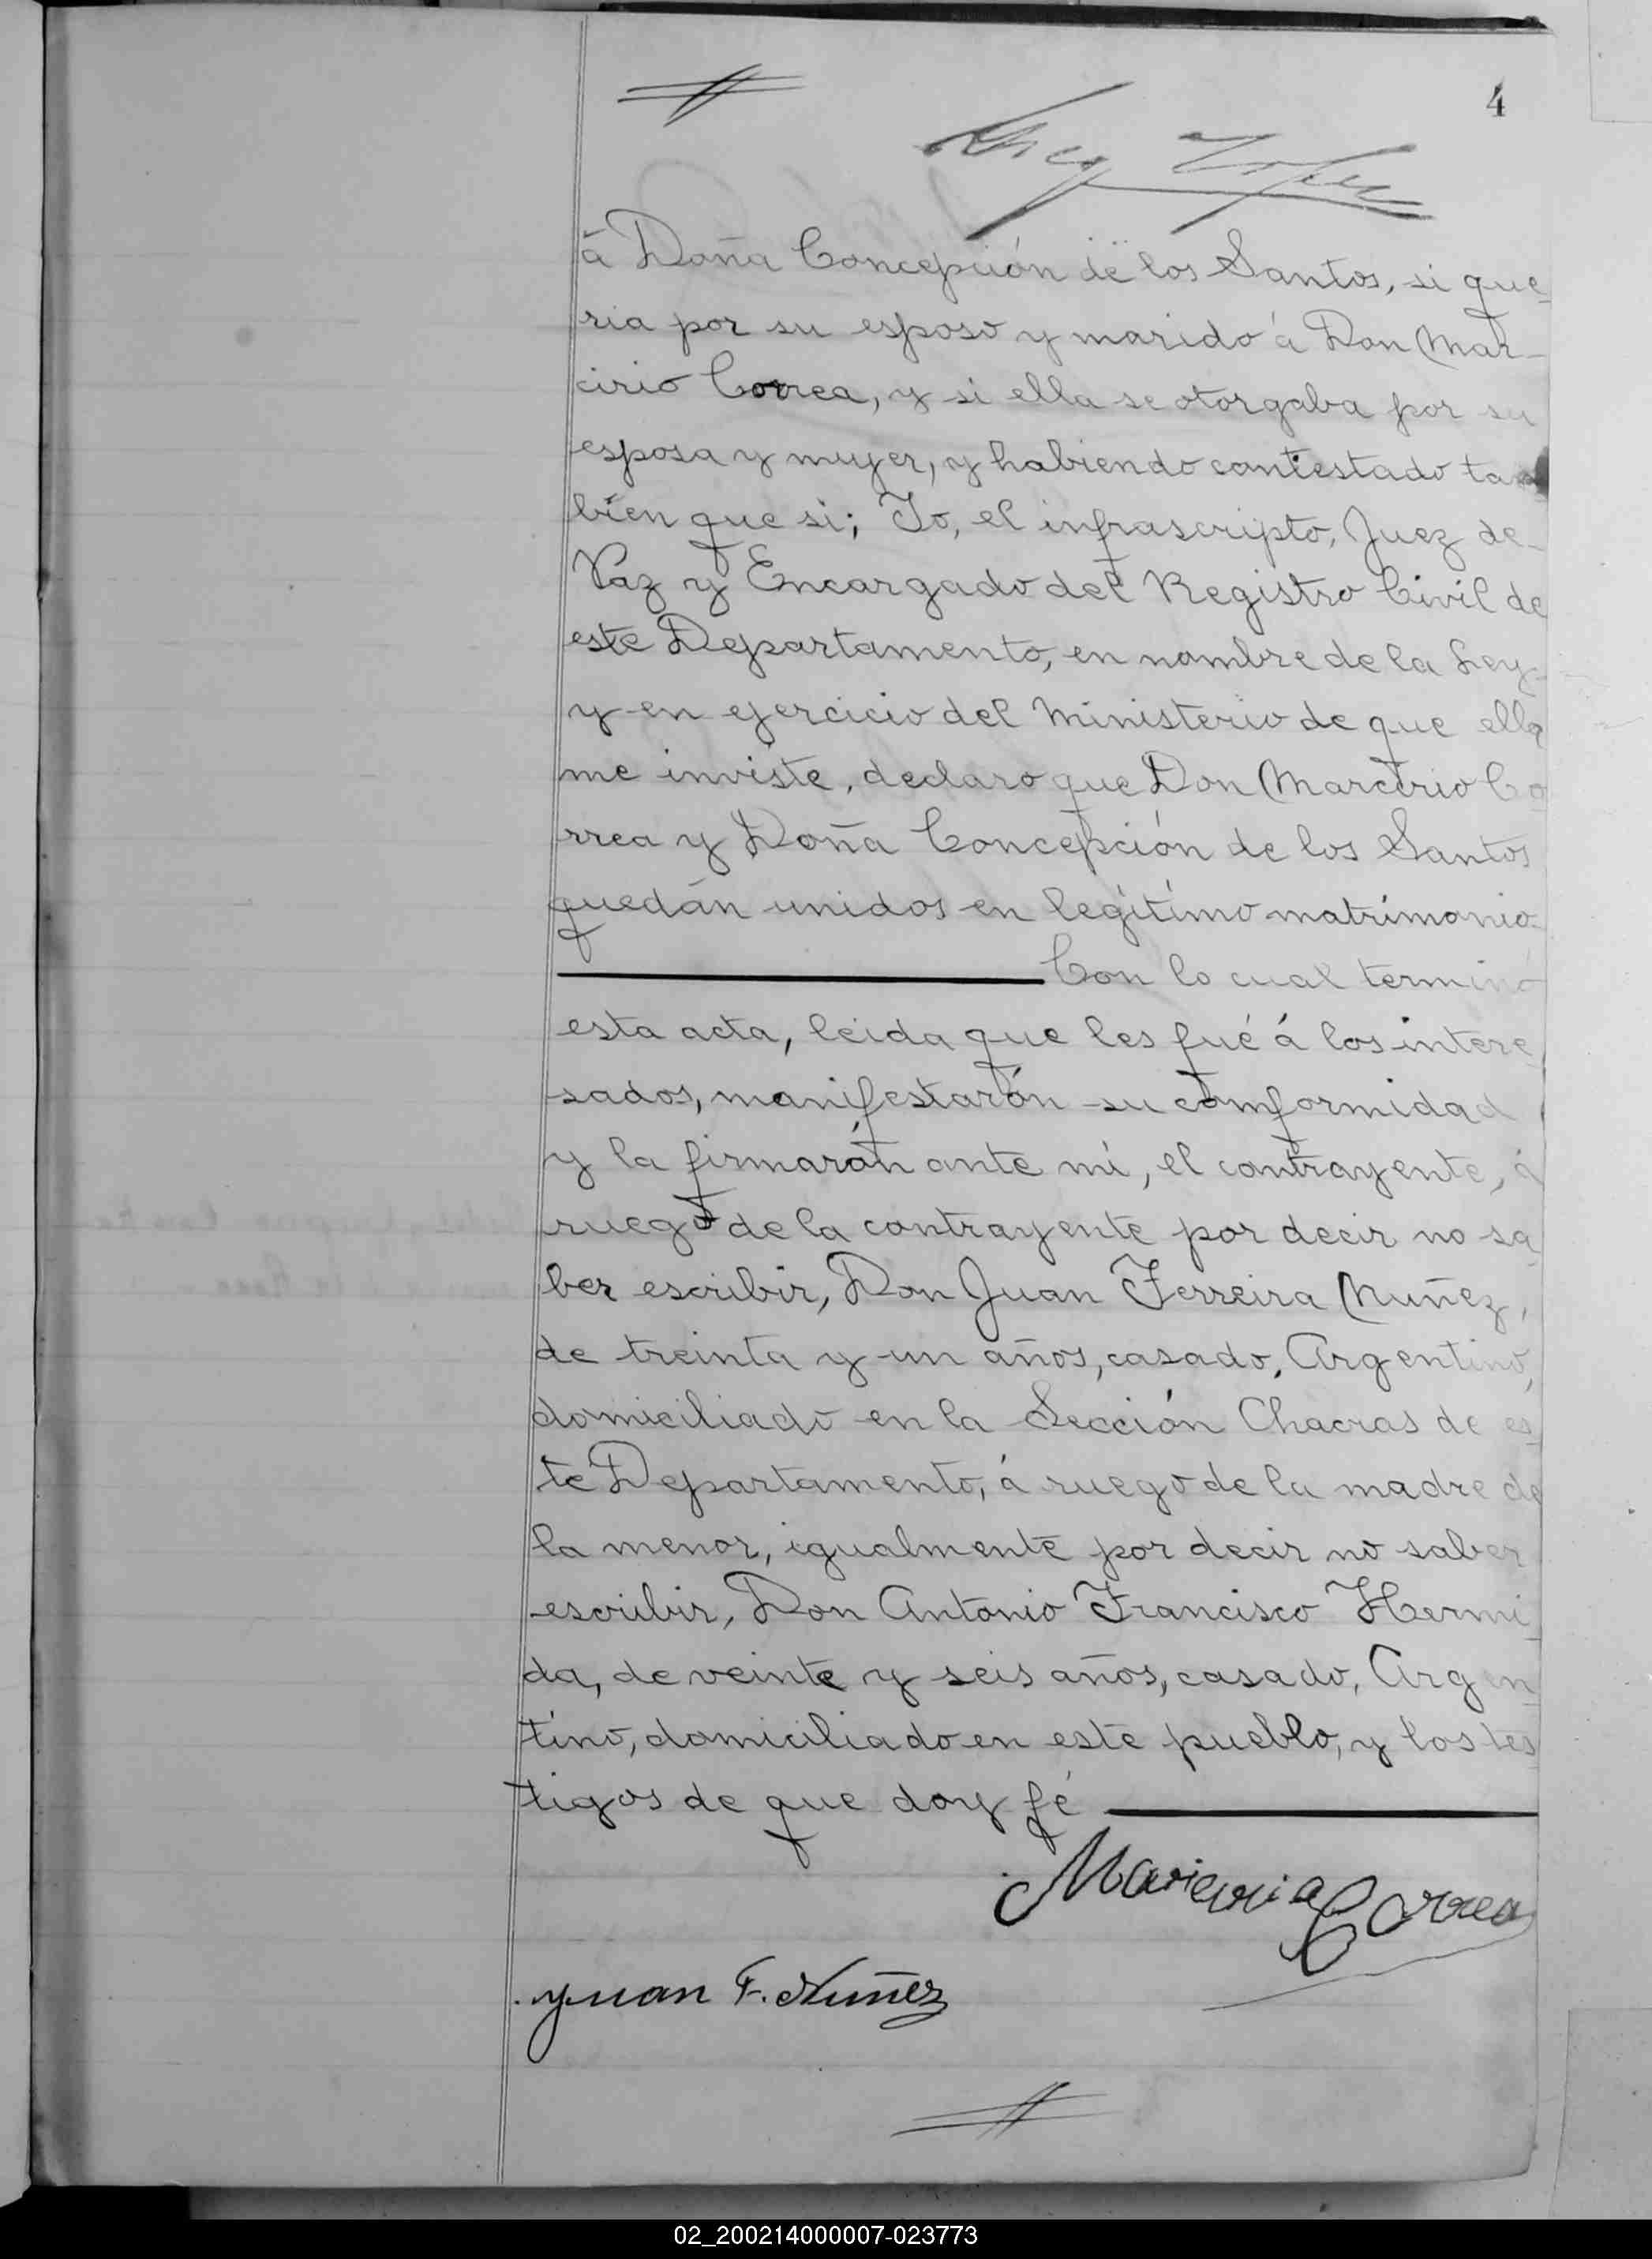 4
á Doña Concepción de los Santos, si que-
ria por su esposo y marido á Don Mar-
cirio Correa, y si ella se otorgaba por su
esposa y mujer, y habiendo contestado tam
bién que si; Yo, el infrascripto, Juez de
Paz y Encargado del Registro Civil de
este Departamento, en nombre de la Ley
y en ejercicio del Ministerio de que ella
me inviste, declaro que Don Marcirio Co
rrea y Doña Concepción de los Santos
quedán unidos en legítimo matrimonio.
Con lo cual terminó
esta acta, leida que les fué á los intere
sados, manifestarón su comformidad
y la firmarán ante mi, el contrayente, á
ruego de la contrayente por decir no sa
ber escribir, Don Juan Ferreira Nuñez,
de treinta y un años, casado, Argentino,
domiciliado en la Sección Chacras de es
te Departamento, á ruego de la madre de
la menor, igualmente por decir no saber
escribir, Don Antonio Francisco Hermi
da, de veinte y seis años, casado, Argen
tino, domiciliado en este pueblo, y los tes
tigos de que doy fé
Correa
Juan F. Nuñez
02_200214000007-023773